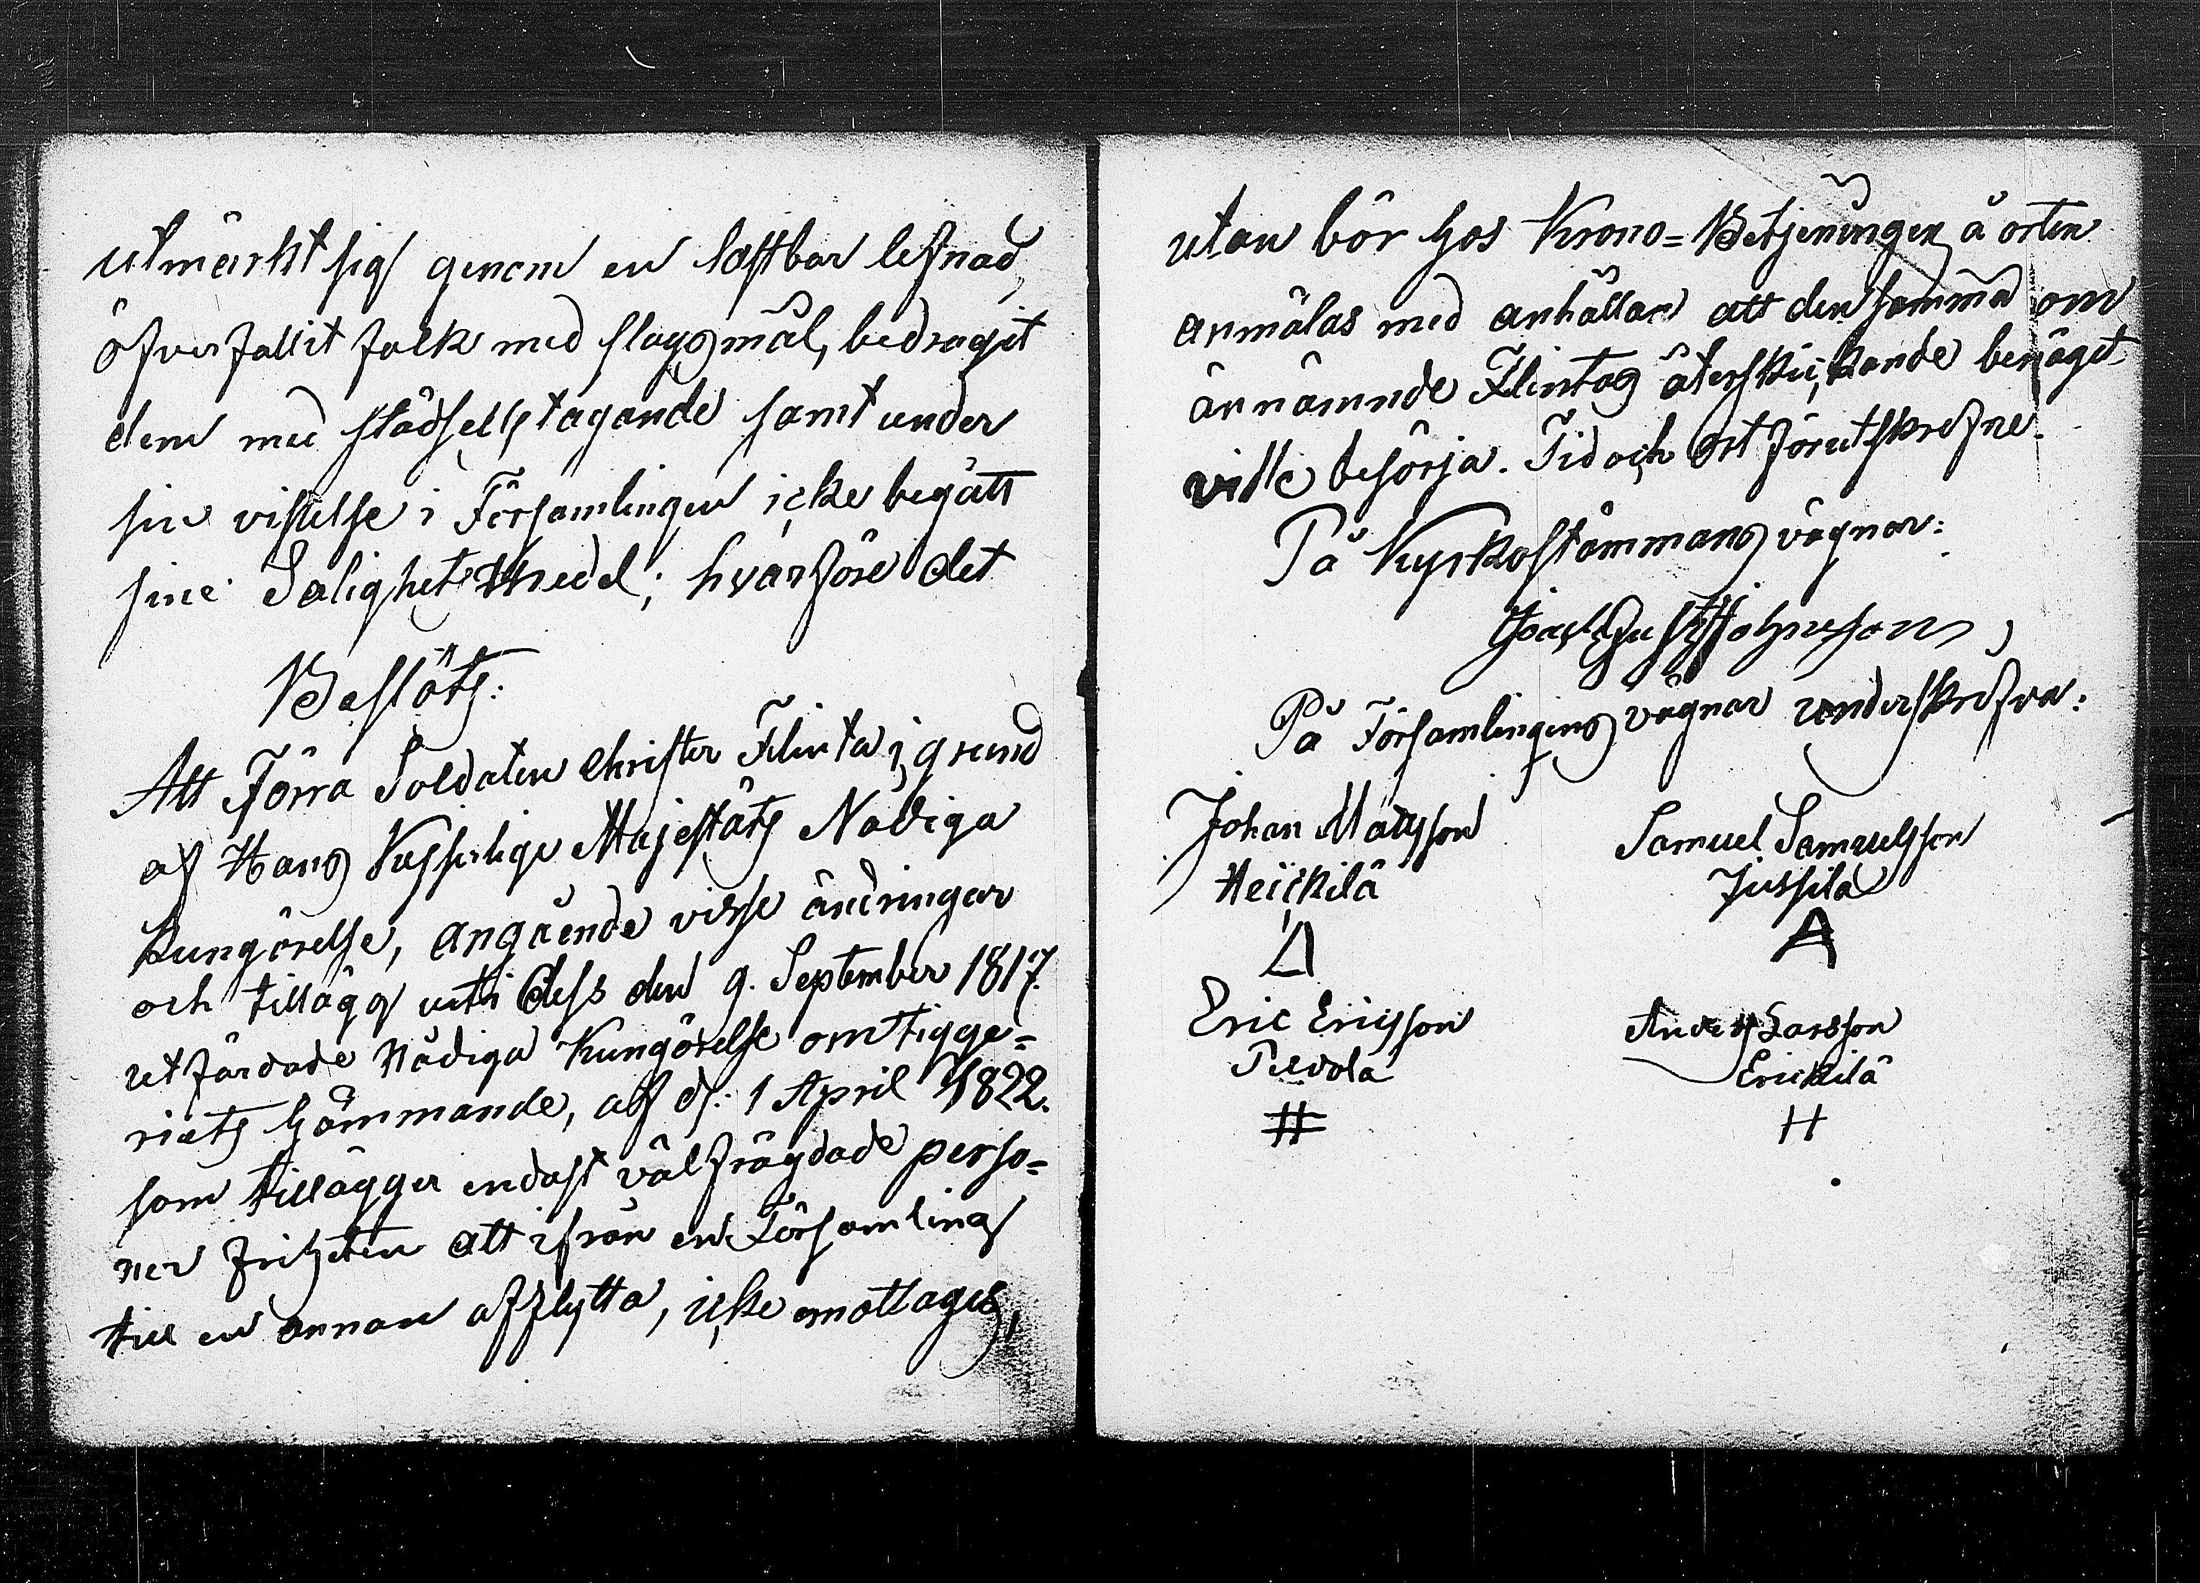 utmärkt sig genom en lastbar lefnad,
öfverfallit folk med slagsmål, bedragit
dem med städsels tagande samt under
sin vistelse i Församlingen icke begått
sine Salighets medel; hvarföre det
Beslöts:
Att Förra Soldaten Christer Flinta i grund
af Hans Kejserlige Majestäts Nådiga
Kungörelse, angående visse ändringar
och tillägg uti dess den 9. September 1817.
utfärdade Nådiga Kungörelse om tigge=
riets hämmande, af d. 1 April 1822.
som tillägger endast välfrägdade perso=
ner friheten att ifrån en Församling
till en annan afflytta, icke emottages,
utan bör hos Krono=Betjeningen å orten
anmälas med anhållan att densamma om
ärnämnde Flintas återskickande benäget
ville besörja. Tid och Ort förutskrefne.
På Kyrkostämmans vägnar:
Gust Johnsson,
På Församlingens vägnar underskrifva:
Johan Matsson Samuel Samuelsson
Heickilä Jussila
A
Eric Ericsson Anders Larsson
Erickilä
# H